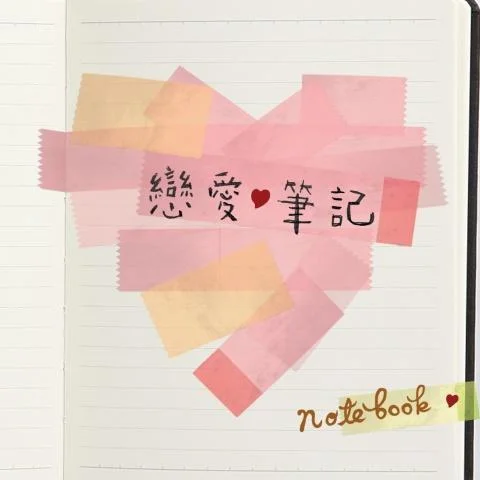 戀愛♥筆記
notebook ♥